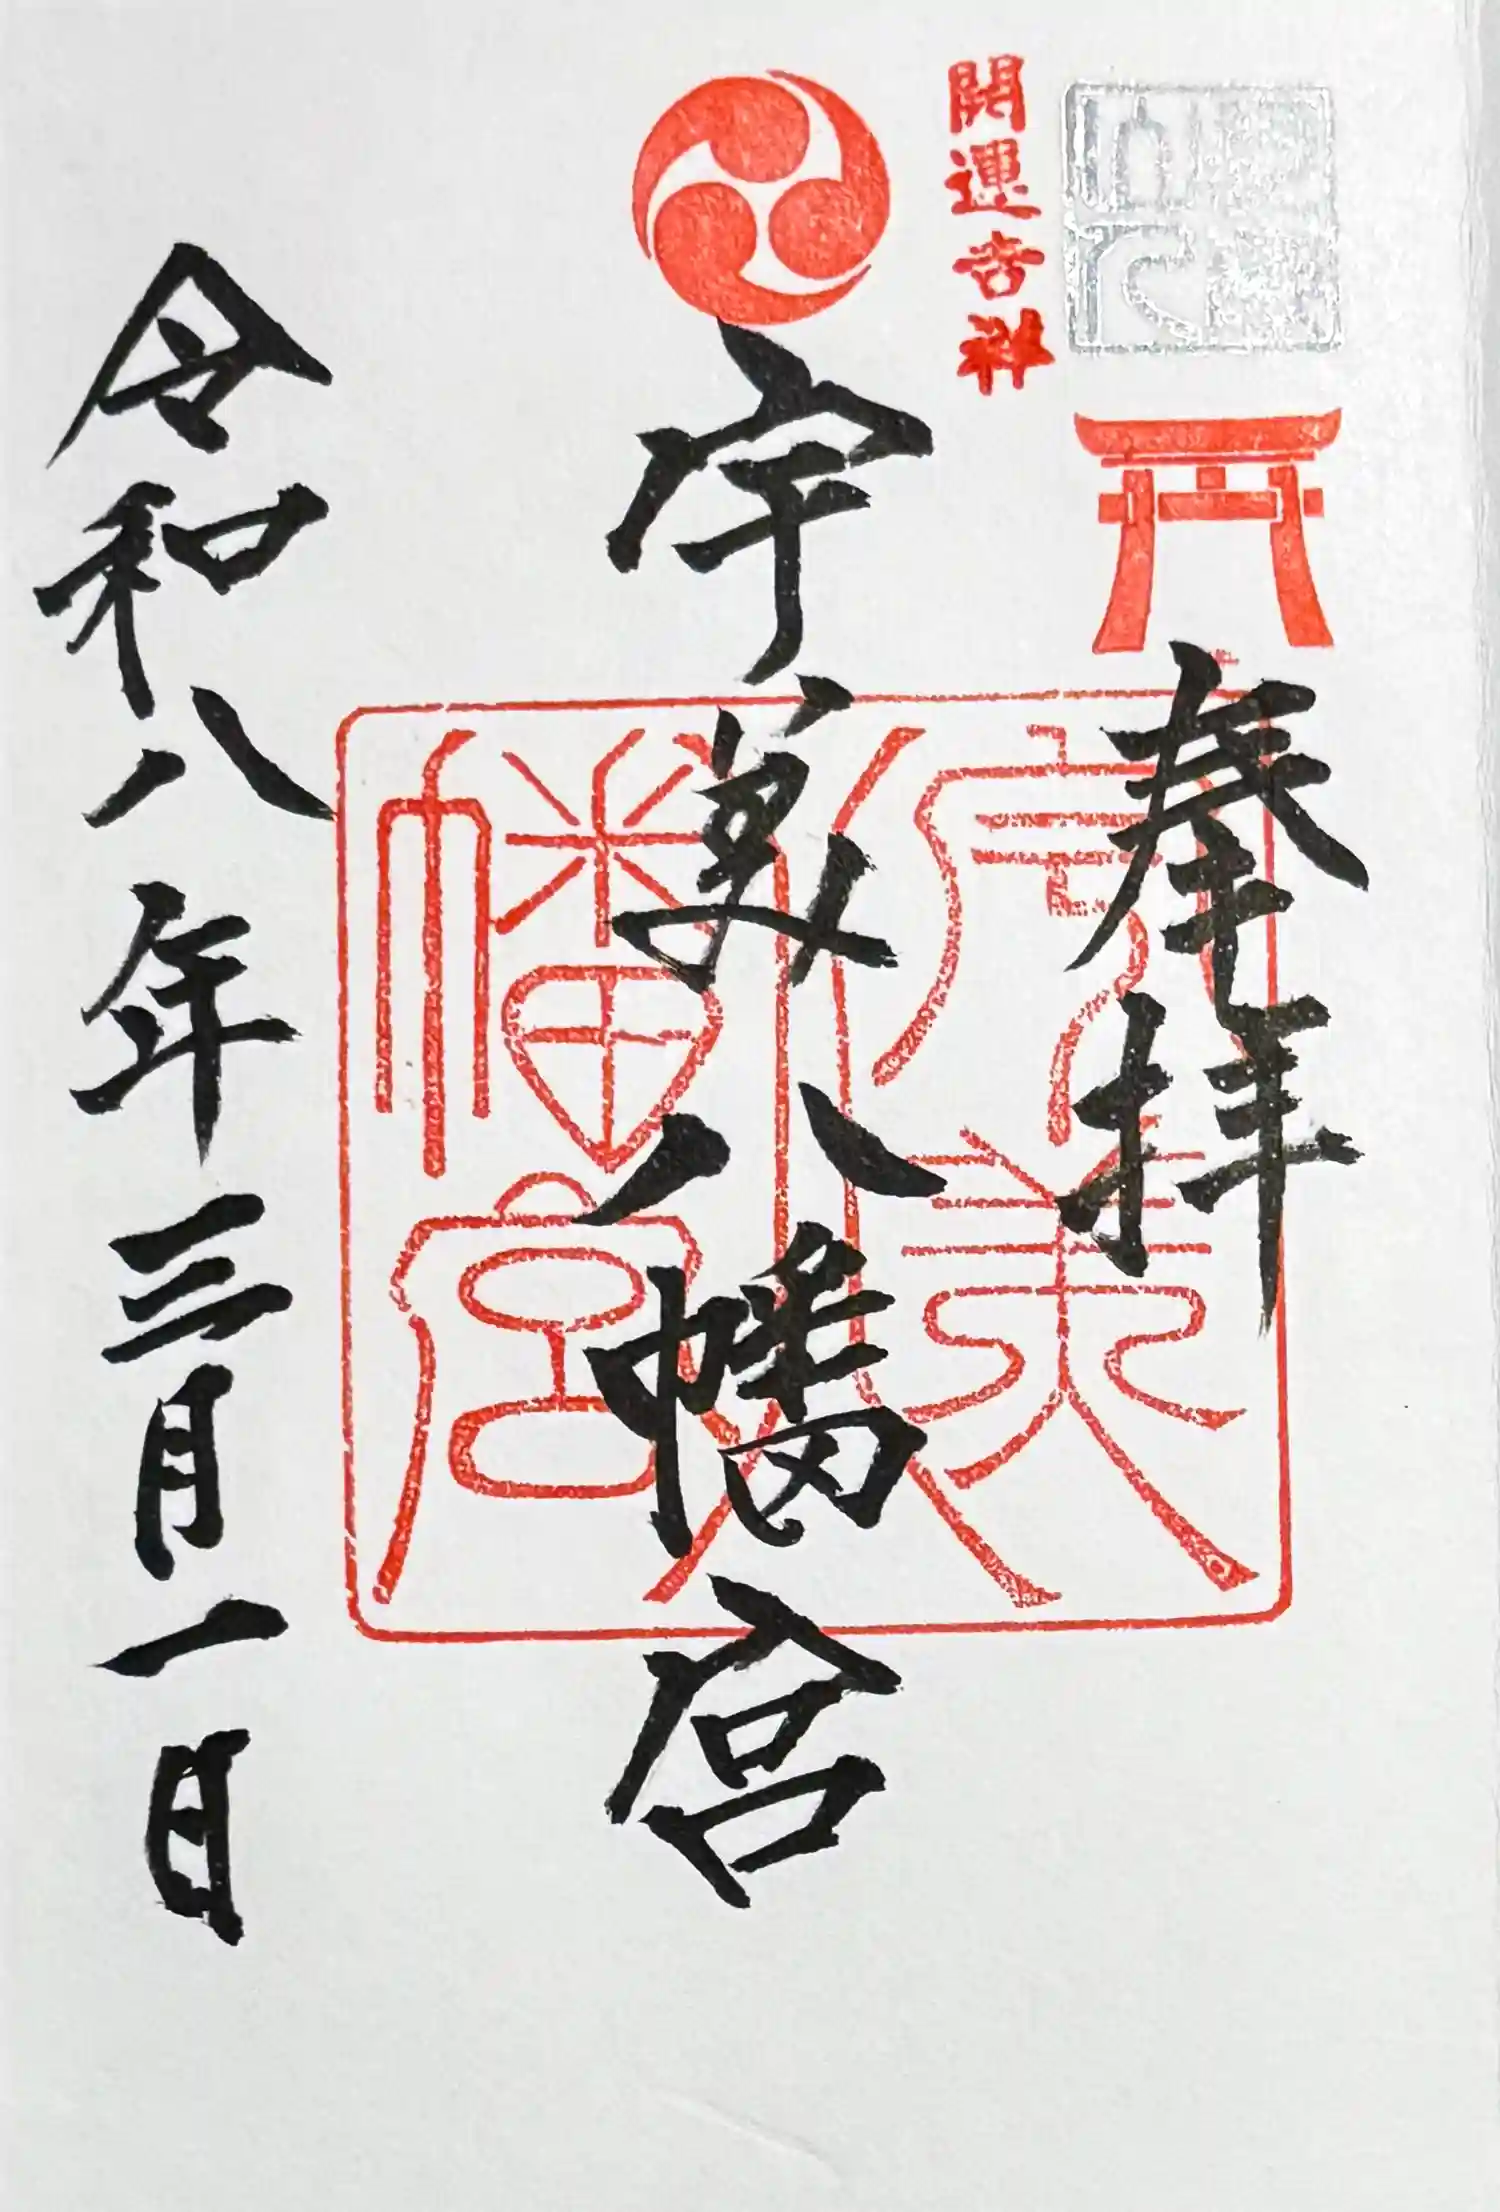 開運吉祥
奉拝
宇美八幡宮
宇美八幡宮
令和八年三月一日